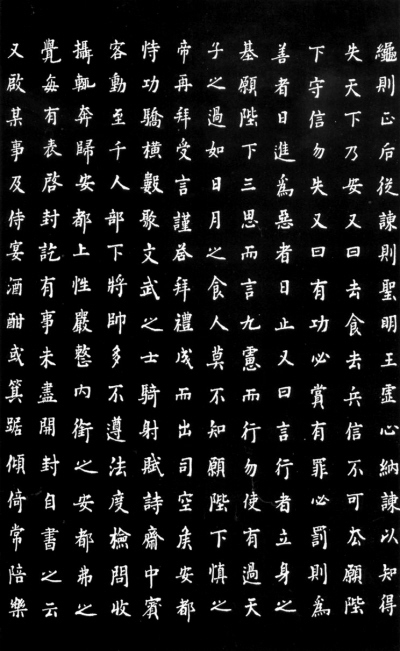 繩則正后從諫則聖明王虛心納諫以知得
失天下乃安又曰去食去兵信不可去願陛
下守信勿失又曰有功必賞有罪必罰則為
善者日進為惡者日止又曰言行者立身之
基願陛下三思而言九慮而行勿使有過天
子之過如日月之食人莫不知願陛下慎之
帝再拜受言謹荅拜禮成而出司空矦安都
恃功驕橫數聚文武之士騎射賦詩齋中賓
客動至千人部下將帥多不遵法度檢問收
攝輒奔歸安都上性嚴整內銜之安都弗之
覺每有表啓封訖有事未盡開封自書之云
又啟某事及侍宴酒酣或箕踞傾倚常陪樂